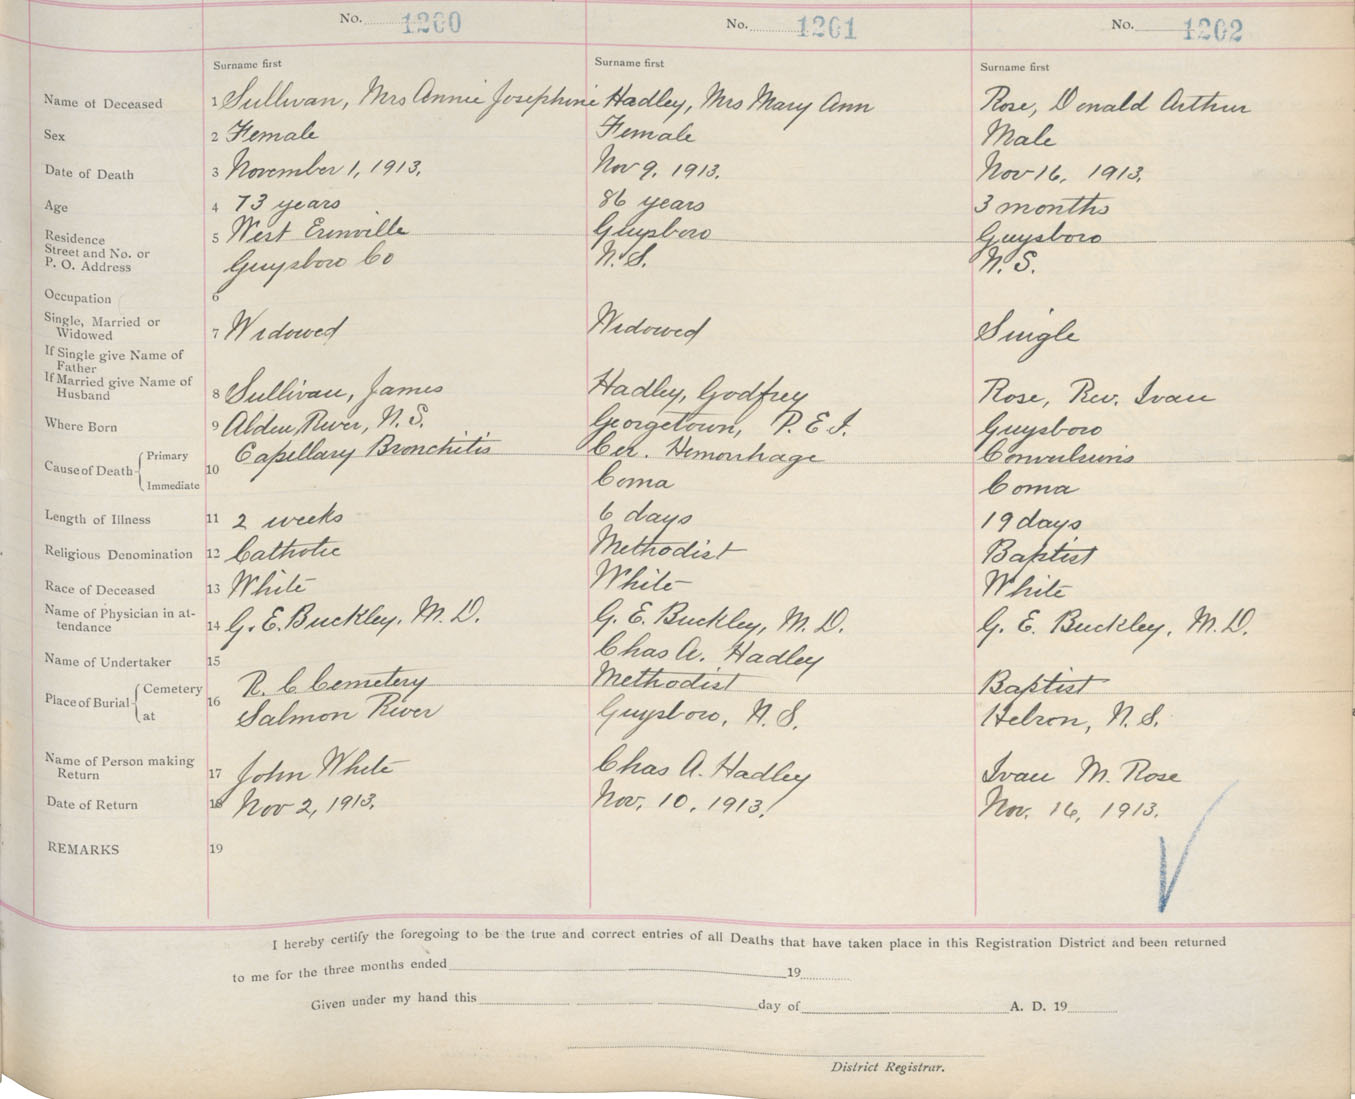 No. 1200 No. 1201 No. 1202
Surname first Surname first Surname first
Name of Deceased 1 Sullivan, Mrs Annie Josephine Hadley, Mrs Mary Ann Rose, Donald Arthur
Sex 2 Female Female Male
Date of Death 3 November 1, 1913. Nov 9, 1913. Nov 16, 1913.
Age 4 73 years 86 years 3 months
Residence 5 West Erinville Guysboro Guysboro
Street and No. or
P. O. Address Guysboro Co N. S. N. S.
Occupation 6
Single, Married or
Widowed 7 Widowed Widowed Single
If Single give Name of
Father
If Married give Name of
Husband 8 Sullivan, James Hadley, Godfrey Rose, Rev. Ivan
Where Born 9 Alder River, N. S. Georgetown, P. E. I. Guysboro
Cause of Death Primary 10 Capillary Bronchitis Cer. Hemorrhage Convulsions
Immediate Coma Coma
Length of Illness 11 2 weeks 6 days 19 days
Religious Denomination 12 Catholic Methodist Baptist
Race of Deceased 13 White White White
Name of Physician in at-
tendance 14 G. E. Buckley, M. D. G. E. Buckley, M. D. G. E. Buckley, M. D.
Name of Undertaker 15 Chas A. Hadley
Place of Burial Cemetery 16 R. C Cemetery Methodist Baptist
at Salmon River Guysboro, N. S. Hebron, N. S.
Name of Person making
Return 17 John White Chas A. Hadley Ivan M. Rose
Date of Return 18 Nov 2, 1913. Nov. 10, 1913. Nov. 16, 1913.
REMARKS 19
I hereby certify the foregoing to be the true and correct entries of all Deaths that have taken place in this Registration District and been returned
to me for the three months ended 19
Given under my hand this day of A. D. 19
District Registrar.